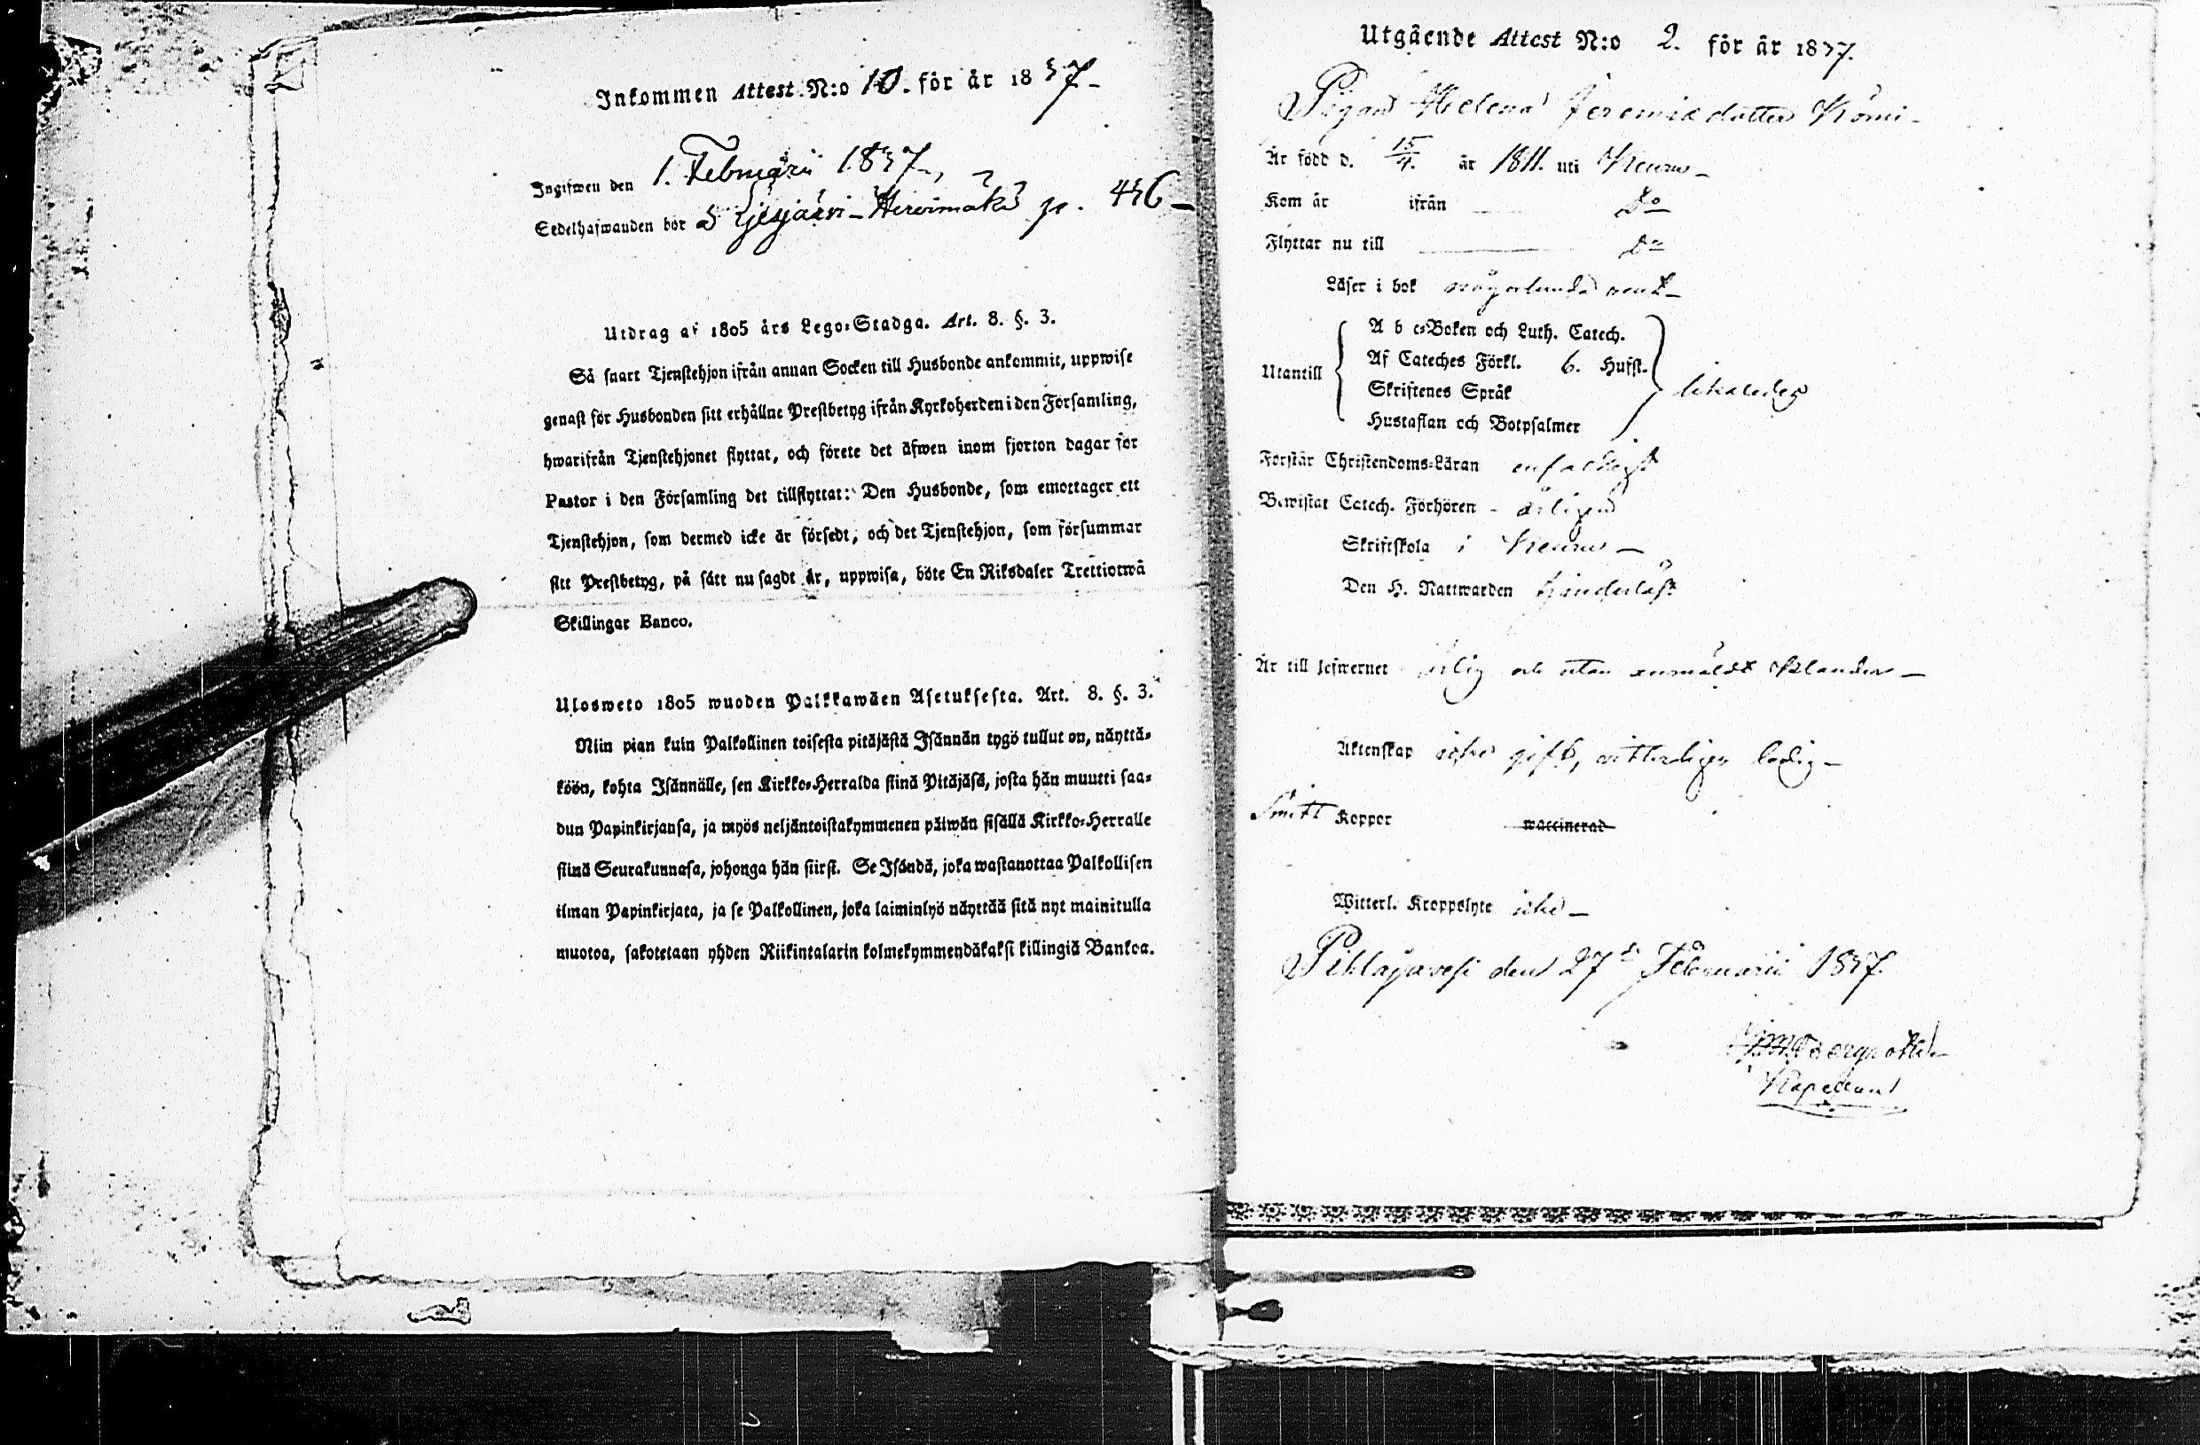 Inkommen Attest N:o 10. för år 1837-
Ingifwen den 1. Februarii 1837-,
Sedelhafwanden bor p. 436-
Utdrag af 1805 års Lego-Stadga. Art. 8. §. 3.
Så snart Tjenstehjon ifrån annan Socken till Husbonde ankommit, uppwise
genast för Husbonden sitt erhållne Prestbetyg ifrån Kyrkoherden i den Församling,
hwarifrån Tjenstehjonet flyttat, och förete det äfwen inom fjorton dagar för
Pastor i den Församling det tillflyttat: Den Husbonde, som emottager ett
Tjenstehjon, som dermed icke är försedt, och det Tjenstehjon, som försummar
sitt Prestbetyg, på sätt nu sagdt är, uppwisa, böte En Riksdaler Trettiotwå
Skillingar Banco.
Ulosweto 1805 wuoden Palkkawäen Asetuksesta. Art. 8. §. 3.
Niin pian kuin Palkollinen toisesta pitäjästä Isännän tygö tullut on, näyttä-
köön, kohta Isännälle, sen Kirkko-Herralda siinä Pitäjäsä, josta hän muutti saa-
dun Papinkirjansa, ja myös neljäntoistakymmenen päiwän sisällä Kirkko-Herralle
siinä Seurakunnasa, johonga hän siirst. Se Isändä, joka wastanottaa Palkollisen
ilman Papinkirjata, ja se Palkollinen, joka laiminlyö näyttää sitä nyt mainitulla
muotoa, sakotetaan yhden Riikintalarin kolmekymmendäkaksi killingiä Bankoa.
Utgående Attest N:o 2. för år 1837.
Pigan Helena Jeremiædotter Kömi-
Är född d. 15/4. år 1811. uti Keuru-
Kom år ifrån Do
Flyttar nu till Do
Läser i bok någorlunda rent-
A b c-Boken och Luth. Catech.
Af Cateches Förkl. 6. Hufst.
Utantill
Skriftenes Språk
likaledes
Hustaflan och Botpsalmer
Förstår Christendoms-Läran enfaldigt
Bewistat Catech. Förhören - årligen
Skriftskola i Keuru-
Den H. Nattwarden
Är till lefwernet ärlig och utan anmäldt klander-
Äktenskap icke gift, witterligen ledig-
Koppor waccinerad
Witterl. Kroppslyte icke-
Pihlajavesi den 27de Februarii 1837.
Kapellan